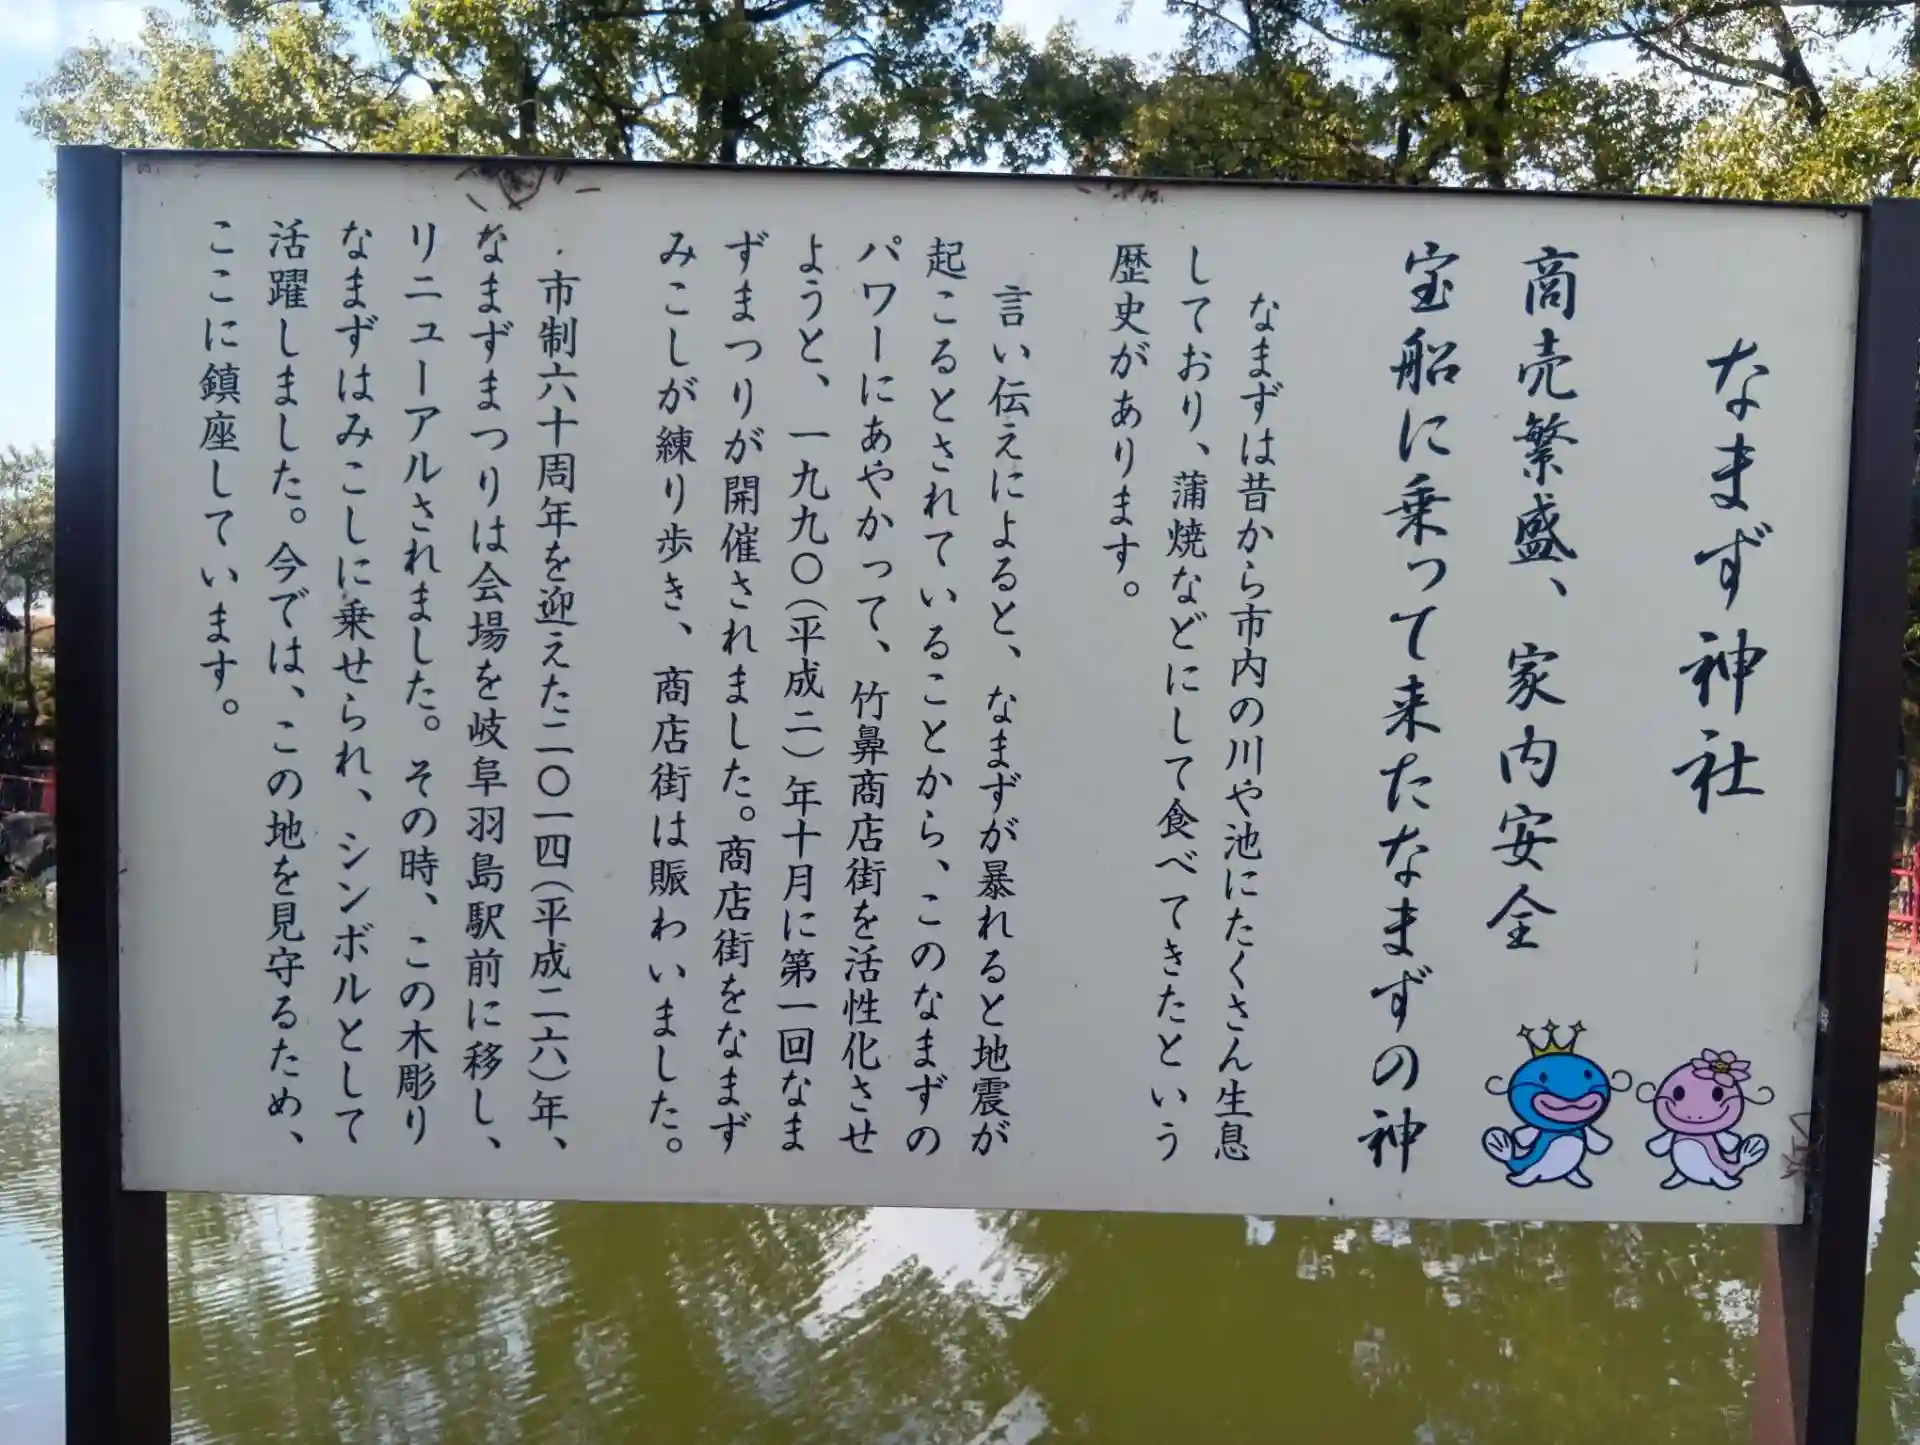 なまず神社
商売繁盛、家内安全
宝船に乗って来たなまずの神
なまずは昔から市内の川や池にたくさん生息
しており、蒲焼などにして食べてきたという
歴史があります。
言い伝えによると、なまずが暴れると地震が
起こるとされていることから、このなまずの
パワーにあやかって、竹鼻商店街を活性化させ
ようと、一九九〇(平成二)年十月に第一回なま
ずまつりが開催されました。商店街をなまず
みこしが練り歩き、商店街は賑わいました。
市制六十周年を迎えた二〇一四(平成二六)年、
なまずまつりは会場を岐阜羽島駅前に移し、
リニューアルされました。その時、この木彫り
なまずはみこしに乗せられ、シンボルとして
活躍しました。今では、この地を見守るため、
ここに鎮座しています。